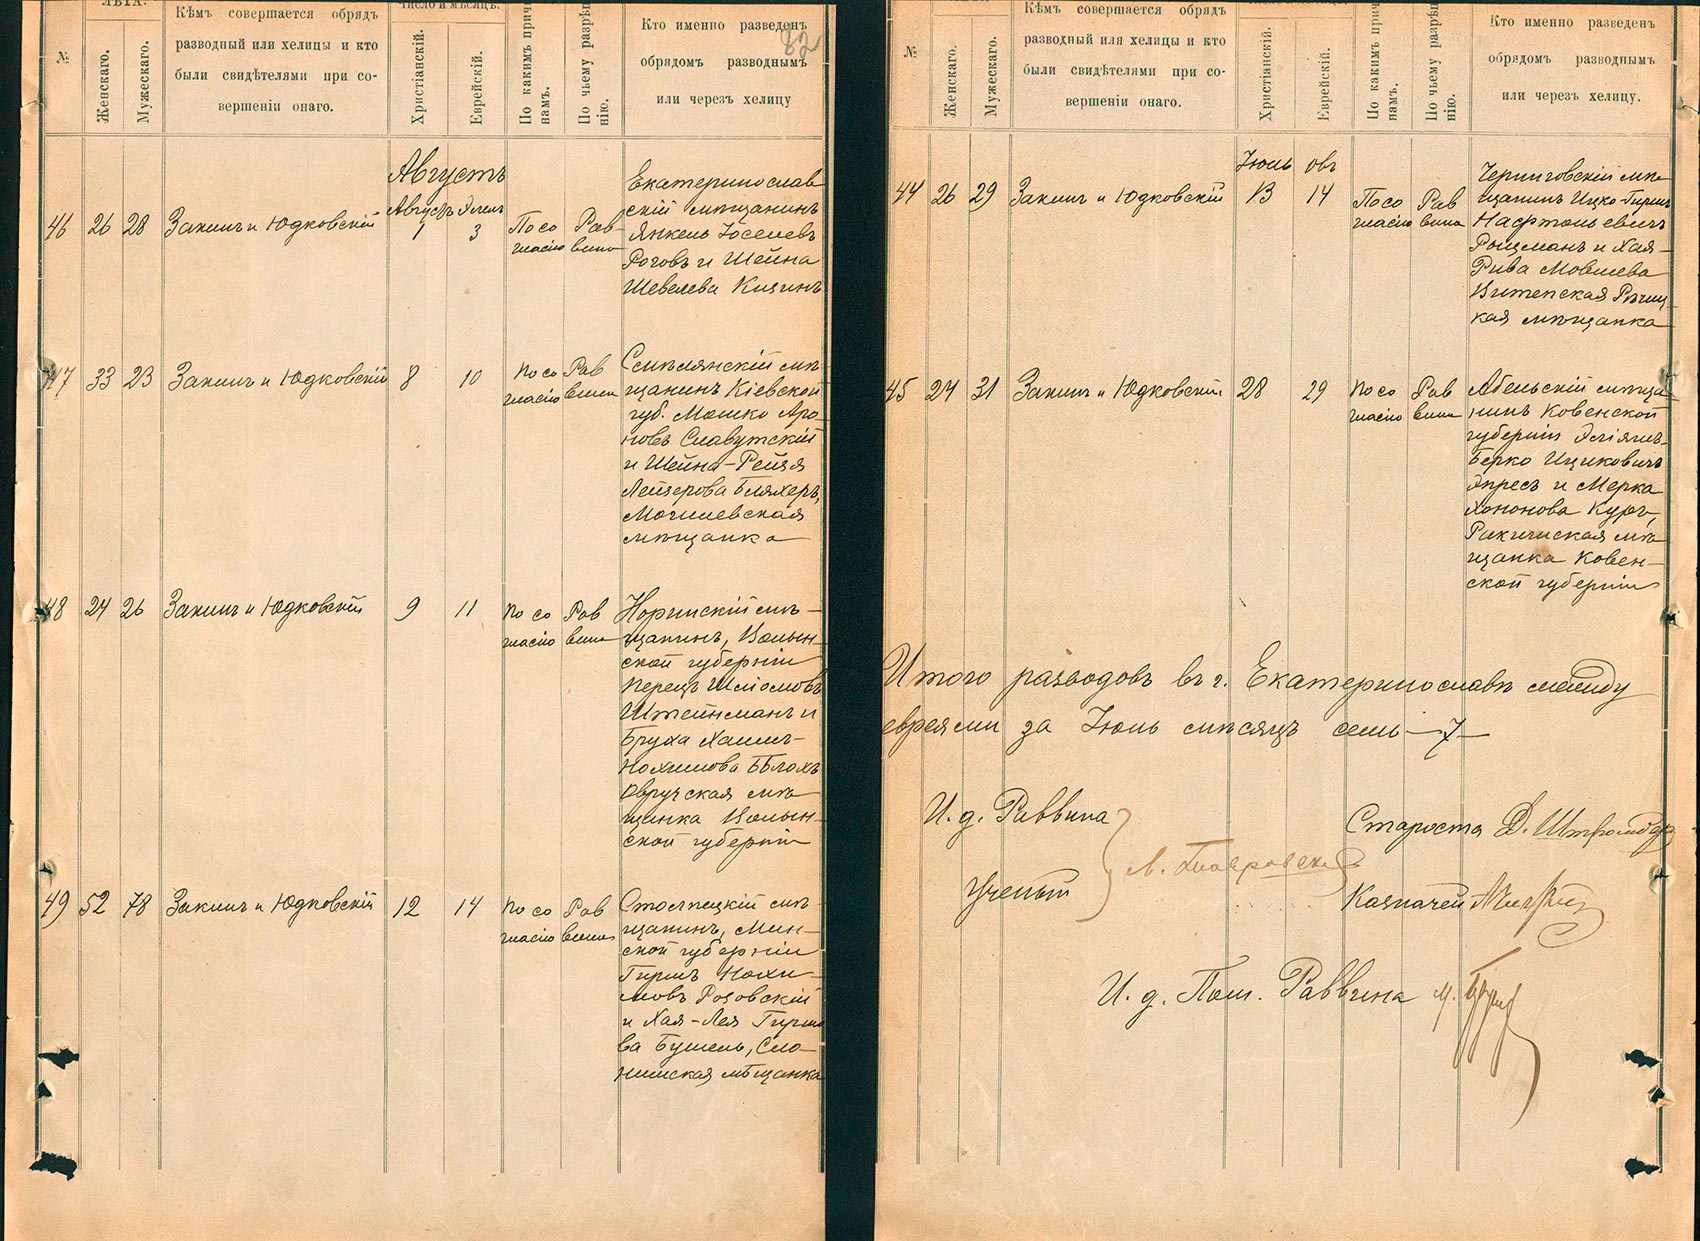 ЛѢТА.
Число и мѣсяцъ.
№
Женскаго.
Мужескаго.
Кѣмъ совершается обрядъ
разводный или хелицы и кто
были свидѣтелями при со-
вершеніи онаго.
Христіанскій.
Еврейскій.
По какимъ прич
намъ.
По чьему разрѣ
нію.
Кто именно разведенъ
обрядомъ разводнымъ
или через хелицу
82
Августъ
Августъ Элелъ
46 26 28 Закинъ и Юдковскій 1 3 По со Рав
гласію вина
Екатеринослав
скій мѣщанинъ
Янкель Іоселевъ
Роговъ и Шейна
Шевелева Кицинъ
47 33 23 Закинъ и Юдковскій 8 10 По со Рав
гласію вина
Смѣлянскій мѣ
щанинъ Кіевской
губ. Мошко Аро
новъ Славутскій
и Шейна-Рейзя
Лейзерова Бляхеръ,
Могилевская
мѣщанка
48 24 26 Закинъ и Юдковскій 9 11 По со Рав
гласію вина
Норинскій мѣ-
щанинъ, Волын-
ской губерніи
Перецъ Шліомовъ
Штейнманъ и
Бруха Хаимъ-
Нохимова Бѣлохъ
Овручская мѣ
щанка Волын-
ской губерніи
49 52 78 Закинъ и Юдковскій 12 14 По со Рав
гласію вина
Столпецкій мѣ
щанинъ, Мин-
ской губерніи
Гиршъ Нохи-
мовъ Розовскій
и Хая-Лея Гирше
ва Бушель, Сло-
нимская мѣщанка
№
Женскаго.
Мужескаго.
Кѣмъ совершается обрядъ
разводный или хелицы и кто
были свидѣтелями при со-
вершеніи онаго.
Христіанскій.
Еврейскій.
По какимъ прич
намъ.
По чьему разрѣш
нію.
Кто именно разведенъ
обрядомъ разводнымъ
или черезъ хелицу.
Іюль овъ
44 26 29 Закинъ и Юдковскій 13 14 По со Рав
гласію вина
Черниговскій мѣ
щанинъ Ицко-Гиршъ
Нафтольевичъ
Рошманъ и Хая-
Рива Мовшева
Витепская Рѣчиц
кая мѣщанка
45 24 31 Закинъ и Юдковскій 28 29 По со Рав
гласію вина
Абельскій мѣща
нинъ Ковенской
губерніи Эліяшъ-
Берко Ициковичъ
Эпресъ и Мерка
Хононова Куръ,
Ракишская мѣ
щанка Ковен-
ской губерніи
Итого разводовъ въ г. Екатеринославѣ между
евреями за Іюль мѣсяцъ семь - 7 -
И. д. Раввина
Ученый
Староста Д.
Казначей
И. д. Пом. Раввина М.